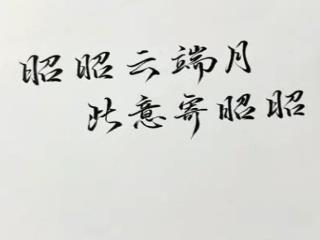 昭昭云端月
此意寄昭昭